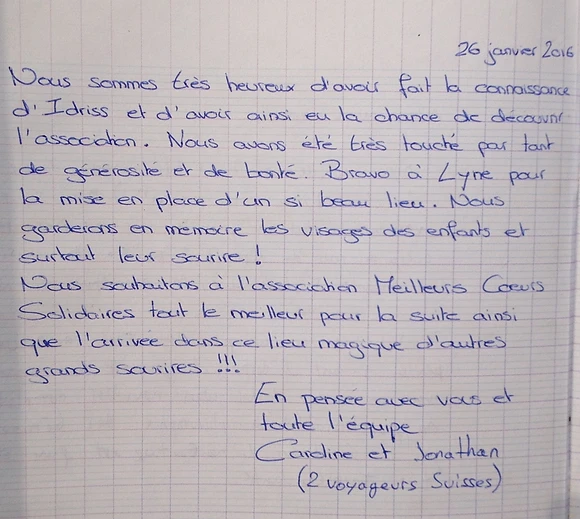 26 janvier 2016
Nous sommes très heureux d'avoir fait la connaissance
d'Idriss et d'avoir ainsi eu la chance de découvrir
l'association. Nous avons été très touché par tant
de générosité et de bonté. Bravo à Lyne pour
la mise en place d'un si beau lieu. Nous
garderons en mémoire les visages des enfants et
surtout leur sourire !
Nous souhaitons à l'association Meilleurs Coeurs
Solidaires tout le meilleur pour la suite ainsi
que l'arrivée dans ce lieu magique d'autres
grands sourires !!!
En pensée avec vous et
toute l'équipe
Caroline et Jonathan
(2 voyageurs Suisses)